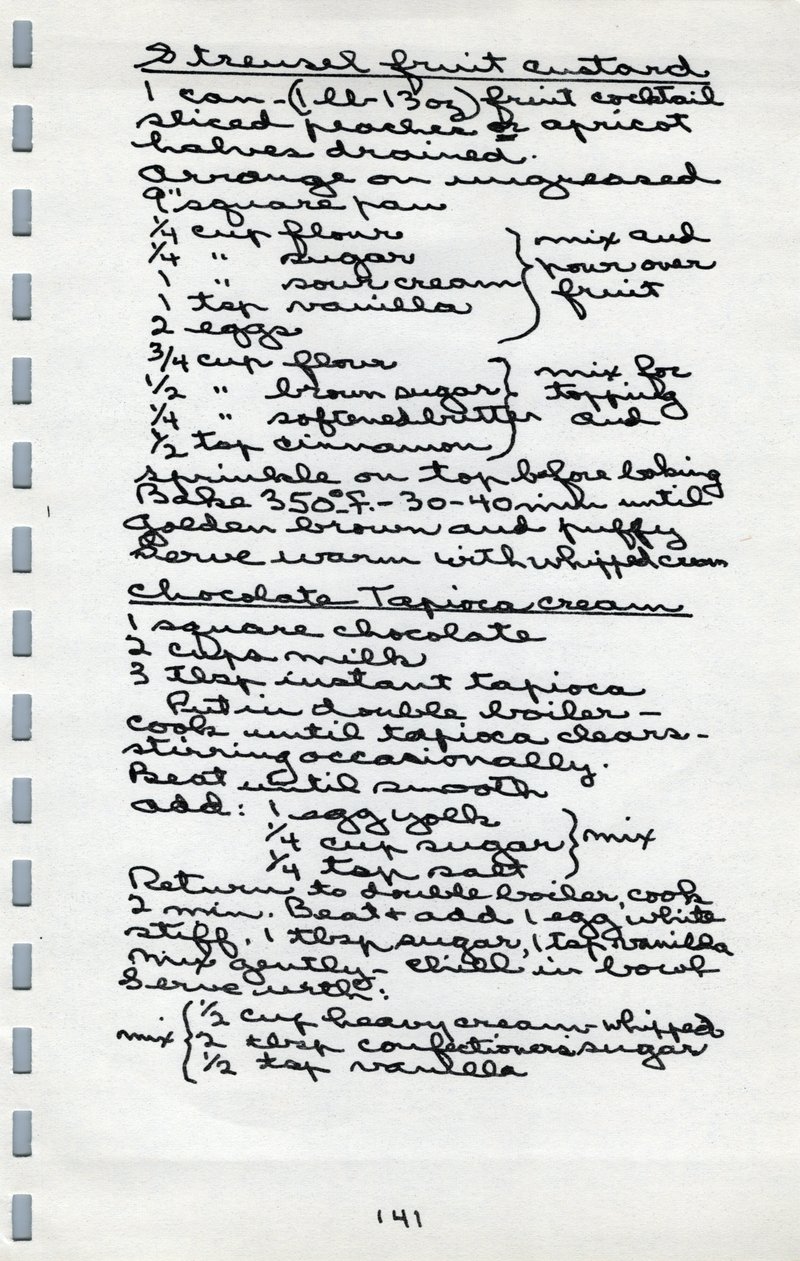 Streusel fruit custard
1 can - (1 lb - 13 oz) fruit cocktail
sliced peaches or apricot
halves drained.
Arrange on ungreased
9" square pan
1/4 cup flour } mix and
1/4 " sugar pour over
1 " sour cream fruit
1 tsp vanilla
2 eggs
3/4 cup flour } mix for
1/2 " brown sugar topping
1/4 " softened butter and
1/2 tsp cinnamon
sprinkle on top before baking
Bake 350° F. - 30-40 min until
golden brown and puffy
Serve warm with whipped cream
Chocolate Tapioca cream
1 square chocolate
2 cups milk
3 tbsp instant tapioca
Put in double boiler -
cook until tapioca clears -
stirring occasionally.
Beat until smooth
add: 1 egg yolk
1/4 cup sugar } mix
1/4 tsp salt
Return to double boiler, cook
2 min. Beat + add 1 egg white
stiff, 1 tbsp sugar, 1 tsp vanilla
mix gently - chill in bowl
Serve with:
1/2 cup heavy cream - whipped
mix { 2 tbsp confectioners sugar
1/2 tsp vanilla
141